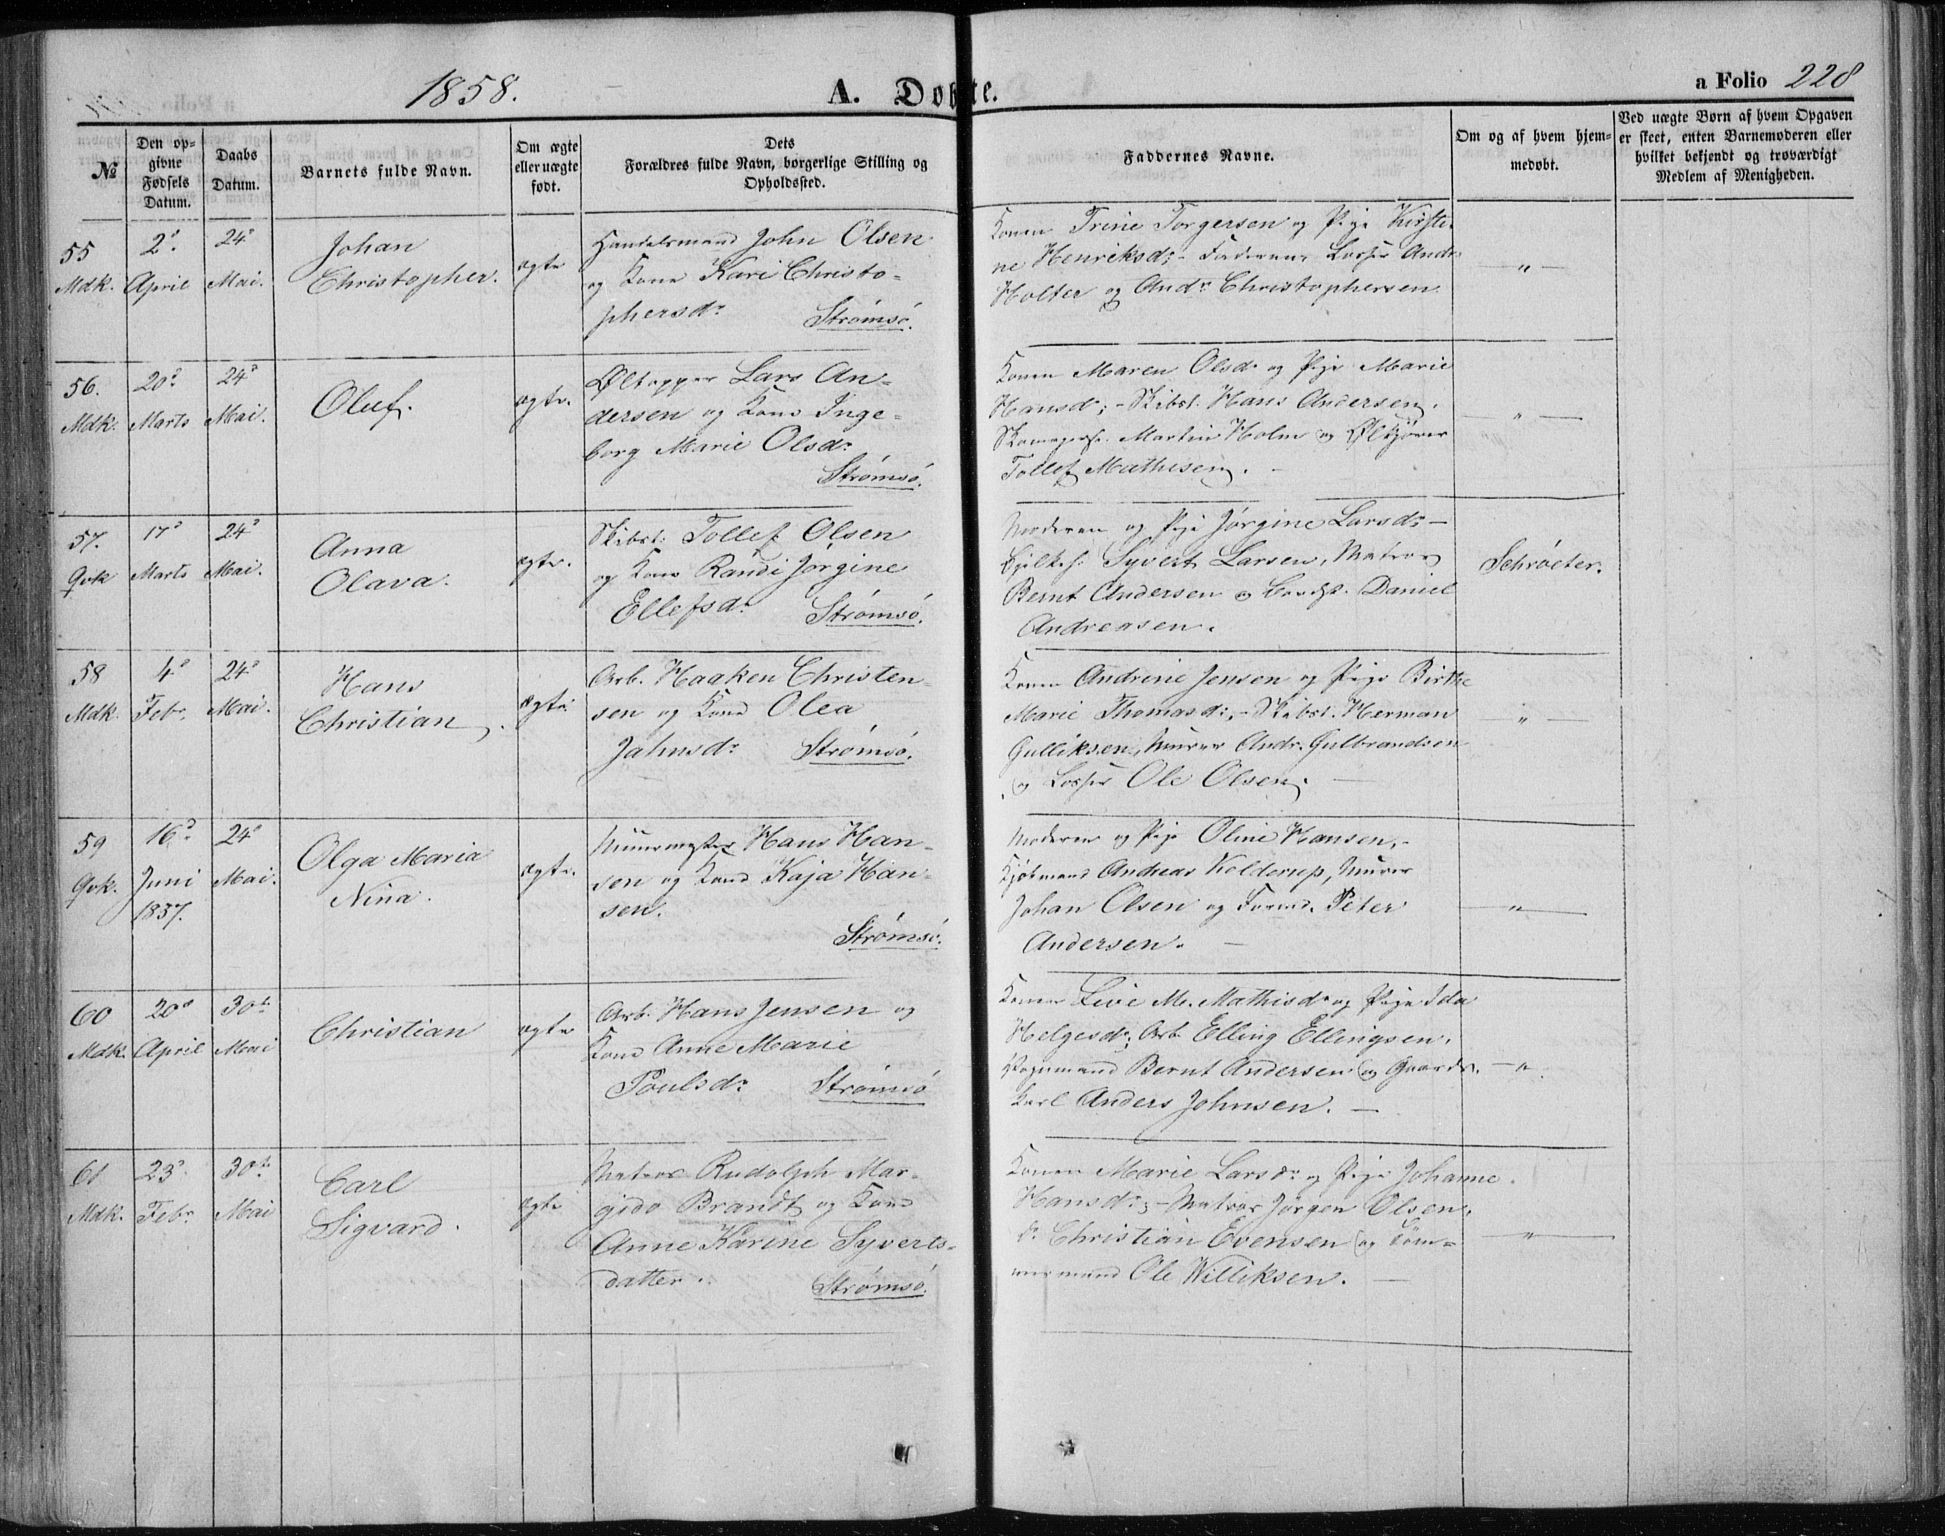 1858.
A. Døbte.
a Folio 228
№
Den opgivne Fødsels Datum.
Daabs Datum.
Barnets fulde Navn.
Om ægte eller uægte født.
Dets Forældres fulde Navn, borgerlige Stilling og Opholdssted.
Faddernes Navne.
Om og af hvem hjemmedøbt.
Ved uægte Børn af hvem Opgaven er skeet, enten Barnemoderen eller hvilket bekjendt og troværdigt Medlem af Menigheden.
55
Mdk.
2d
April
24d
Mai.
Johan
Christopher.
ægte
Handelsmand John Olsen
og Kone Kari Christo-
phersdr
Strømsø.
Konen Trine Torgersen og Pige Kirsti-
ne Henriksd; - Faderen, Losser Andr.
Holter og Andr Christophersen
— " —
56.
Mdk.
20d
Marts
24d
Mai.
Oluf.
ægte.
Øltapper Lars An-
dersen og Kone Inge-
borg Marie Olsdr
Strømsø.
Konen Maren Olsdr og Pige Marie
Hansd; - Skibst. Hans Andersen,
Martin Holm og
Tollef Mathisen. -
— " —
57.
Qvk
17d
Marts
24d
Mai.
Anna
Olava.
ægte.
Skibst: Tollef Olsen
og Kone Randi Jørgine
Ellefsdr
Strømsø.
Moderen og Pige Jørgine Larsd; -
Syvert Larsen, Matros
Bernt Andersen og Daniel
Andreasen.
Schrøeter.
58
Mdk.
4d
Febr.
24d
Mai.
Hans
Christian.
ægte.
Arb. Haaken Christen-
sen og Kone Olea
Jahnsdr
Strømsø.
Konen Andrine Jensen og Pige Birthe
Marie Thomasd; - Skibst. Herman
Gulliksen, Murer Andr. Gulbrandsen
og Losser Ole Olsen. —
" —
59
Qvk.
16d
Juni
1857.
24d
Mai.
Olga Maria
Nina.
ægte.
Muurmester Hans Han-
sen og Kone Kaja Han-
sen.
Strømsø.
Moderen og Pige Oline Hansen, -
Kjøbmand Andreas Kolderup, Murer
Johan Olsen og Peter
Andersen. —
— " —
60
Mdk.
20d
April
30te
Mai
Christian
ægte
Arb. Hans Jensen og
Kone Anne Marie
Poulsdr
Strømsø
Konen Live M. Mathisdr og Pige Ida
Helgesd; Arb. Elling Ellingsen,
Vognmand Bernt Andersen og Gaards-
karl Anders Johnsen. —
— " .
61
Mdk.
23d
Febr.
30te
Mai
Carl
Sigvard.
ægte
Matros Rudolph Mar-
gido Brandt og Kone
Anne Karine Syverts-
datter.
Strømsø.
Konen Marie Larsdr og Pige Johanne
Hansdr; - Matros Jørgen Olsen,
do Christian Evensen og Tøm-
mermand Ole Williksen. —
— " —